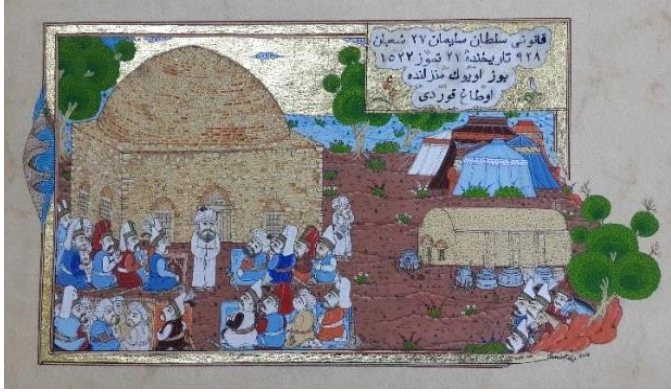 قانونی سلطان سلیمان ٢٧ شعبان
٩٢٨ تاریخنده ٢١ تموز ١٥٢٢
بوز اویوك منزلنده
اوطاغ قوردی